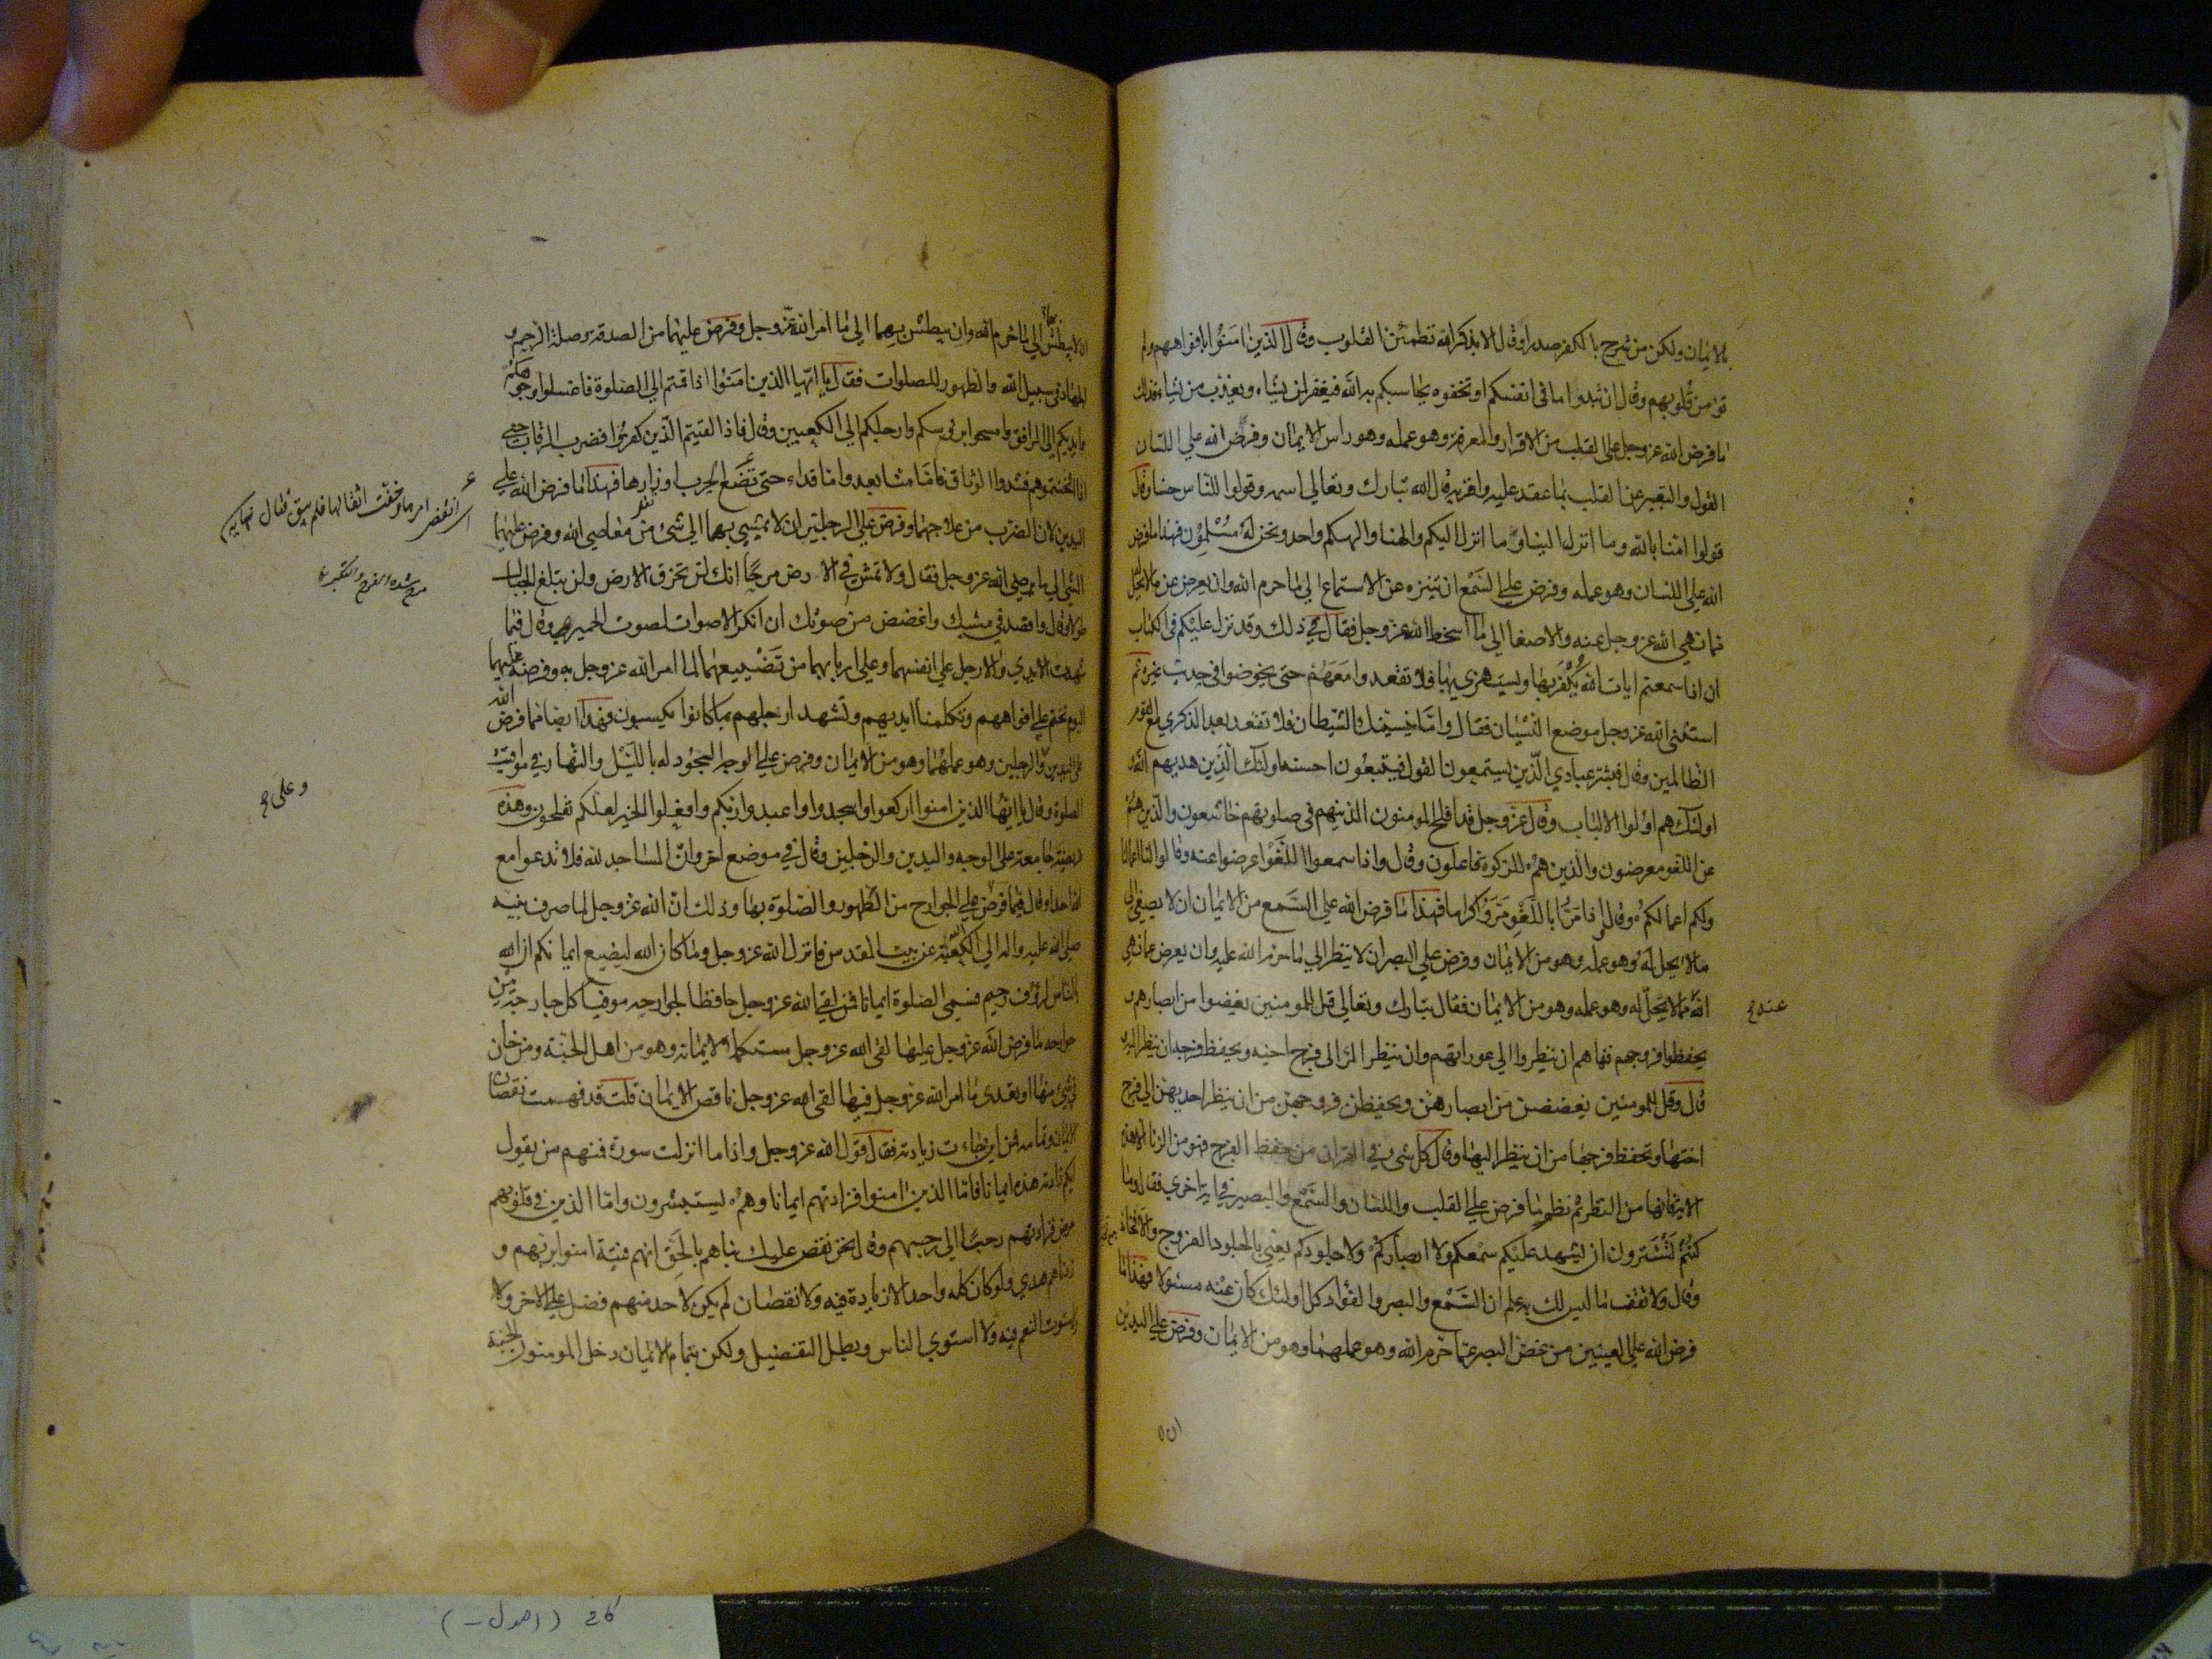 بالايمان ولكن من شرح بالكفر صدرا وقال الا بذكر الله تطمئن القلوب وقال الذين امنوا بافواههم ولم
تؤمن قلوبهم وقال ان تبدوا ما في انفسكم او تخفوه يحاسبكم به الله فيغفر لمن يشاء ويعذب من يشاء فذلك
ما فرض الله عز وجل على القلب من الاقرار والمعرفة وهو عمله وهو راس الايمان وفرض الله على اللسان
القول والتعبير عن القلب بما عقد عليه واقر به قال الله تبارك وتعالى اسمه وقولوا للناس حسنا وقال
قولوا امنا بالله وما انزل الينا وما انزل اليكم والهنا والهكم واحد ونحن له مسلمون فهذا ما فرض
الله على اللسان وهو عمله وفرض على السمع ان يتنزه عن الاستماع الى ما حرم الله وان يعرض عن ما لا يحل
مما نهى الله عز وجل عنه والاصغا الى ما اسخط الله عز وجل فقال في ذلك وقد نزل عليكم في الكتاب
ان اذا سمعتم ايات الله يكفر بها ويستهزئ بها فلا تقعدوا معهم حتى يخوضوا في حديث غيره ثم
استثنى الله عز وجل موضع النسيان فقال واما ينسينك الشيطان فلا تقعد بعد الذكرى مع القوم
الظالمين وقال فبشر عبادي الذين يستمعون القول فيتبعون احسنه اولئك الذين هديهم الله و
اولئك هم اولوا الالباب وقال عز وجل قد افلح المومنون الذينهم في صلوتهم خاشعون والذين هم
عن اللغو معرضون والذين هم للزكوة فاعلون وقال واذا سمعوا اللغوا عرضوا عنه وقالوا لنا اعمالنا
ولكم اعمالكم وقال واذا مروا باللغو مروا كراما فهذا ما فرض الله على السمع من الايمان ان لا يصغى الى
ما لا يحل له وهو عمله وهو من الايمان وفرض على البصر ان لا ينظر الى ما حرم الله عليه وان يعرض عما نهى
الله مما لا يحل له وهو عمله وهو من الايمان فقال تبارك وتعالى قل للمومنين يغضوا من ابصارهم و
عنه
يحفظوا فروجهم فنهاهم ان ينظروا الى عوراتهم وان ينظر المرء الى فرج اخيه ويحفظ فرجه ان ينظر اليه و
قال وقل للمومنين يغضضن من ابصارهن ويحفظن فروجهن من ان ينظر احديهن الى فرج
اختها وتحفظ فرجها من ان ينظر اليها وقال كل شئ في القران من حفظ الفرج فهو من الزنا الا هذه
الاية فانها من النظر ثم نظم ما فرض على القلب واللسان والسمع والبصر في اية اخرى فقال وما
كنتم تستترون ان يشهد عليكم سمعكم ولا ابصاركم ولا جلودكم يعنى بالجلود الفروج والافخاذ
وقال ولا تقف ما ليس لك به علم ان السمع والبصر والفؤاد كل اولئك كان عنه مسئولا فهذا ما
فرض الله على العينين من غض البصر عما حرم الله وهو عملهما وهو من الايمان وفرض على اليدين
ان لا
ان لا يبطش بهما الى ما حرم الله وان يبطش بهما الى ما امر الله عز وجل وفرض عليهما من الصدقة وصلة الرحم و
الجهاد في سبيل الله والطهور للصلوات فقال يا ايها الذين امنوا اذا قمتم الى الصلوة فاغسلوا وجوهكم
وايديكم الى المرافق وامسحوا برؤسكم وارجلكم الى الكعبين وقال فاذا لقيتم الذين كفروا فضرب الرقاب حتى
اذا اثخنتموهم فشدوا الوثاق فاما منا بعد واما فداء حتى تضع الحرب اوزارها فهذا ما فرض الله على
اليدين لان الضرب من علاجهما وفرض على الرجلين ان لا يمشي بهما الى شئ من معاصي الله وفرض عليهما
المشي الى ما يرضى الله عز وجل فقال ولا تمش في الارض مرحا انك لن تخرق الارض ولن تبلغ الجبال
طولا وقال واقصد في مشيك واغضض من صوتك ان انكر الاصوات لصوت الحمير وقال فيما
شهدت الايدي والارجل على انفسهما وعلى اربابهما من تضييعهما لما امر الله عز وجل به وفرضه عليهما
اليوم نختم على افواههم وتكلمنا ايديهم وتشهد ارجلهم بما كانوا يكسبون فهذا ايضا مما فرض الله
على اليدين والرجلين وهو عملهما وهو من الايمان وفرض على الوجه السجود له بالليل والنهار في مواقيت
الصلوة وقال يا ايها الذين امنوا اركعوا واسجدوا واعبدوا ربكم وافعلوا الخير لعلكم تفلحون وهذه
وعلى
فريضة جامعة على الوجه واليدين والرجلين وقال في موضع اخر وان المساجد لله فلا تدعوا مع
الله احدا وقال فيما فرض على الجوارح من الطهور والصلوة بها وذلك ان الله عز وجل لما صرف نبيه
صلى الله عليه واله الى الكعبة عن بيت المقدس فانزل الله عز وجل وما كان الله ليضيع ايمانكم ان الله
بالناس لرؤف رحيم فسمى الصلوة ايمانا فمن لقى الله عز وجل حافظا لجوارحه موفيا كل جارحة من
جوارحه ما فرض الله عز وجل عليها لقى الله عز وجل مستكملا لايمانه وهو من اهل الجنة ومن خان
في شئ منها او تعدى ما امر الله عز وجل فيها لقى الله عز وجل ناقص الايمان قلت قد فهمت نقصان
الايمان وتمامه فمن اين جاءت زيادته فقال قول الله عز وجل واذا ما انزلت سورة فمنهم من يقول
ايكم زادته هذه ايمانا فاما الذين امنوا فزادتهم ايمانا وهم يستبشرون واما الذين في قلوبهم
مرض فزادتهم رجسا الى رجسهم وقال نحن نقص عليك نباهم بالحق انهم فتية امنوا بربهم و
زدناهم هدى ولو كان كله واحدا لا زيادة فيه ولا نقصان لم يكن لاحد منهم فضل على الاخر ولا
لاستوت النعم فيه ولا استوى الناس وبطل التفضيل ولكن بتمام الايمان دخل المومنون الجنة
كافى (اصول -)